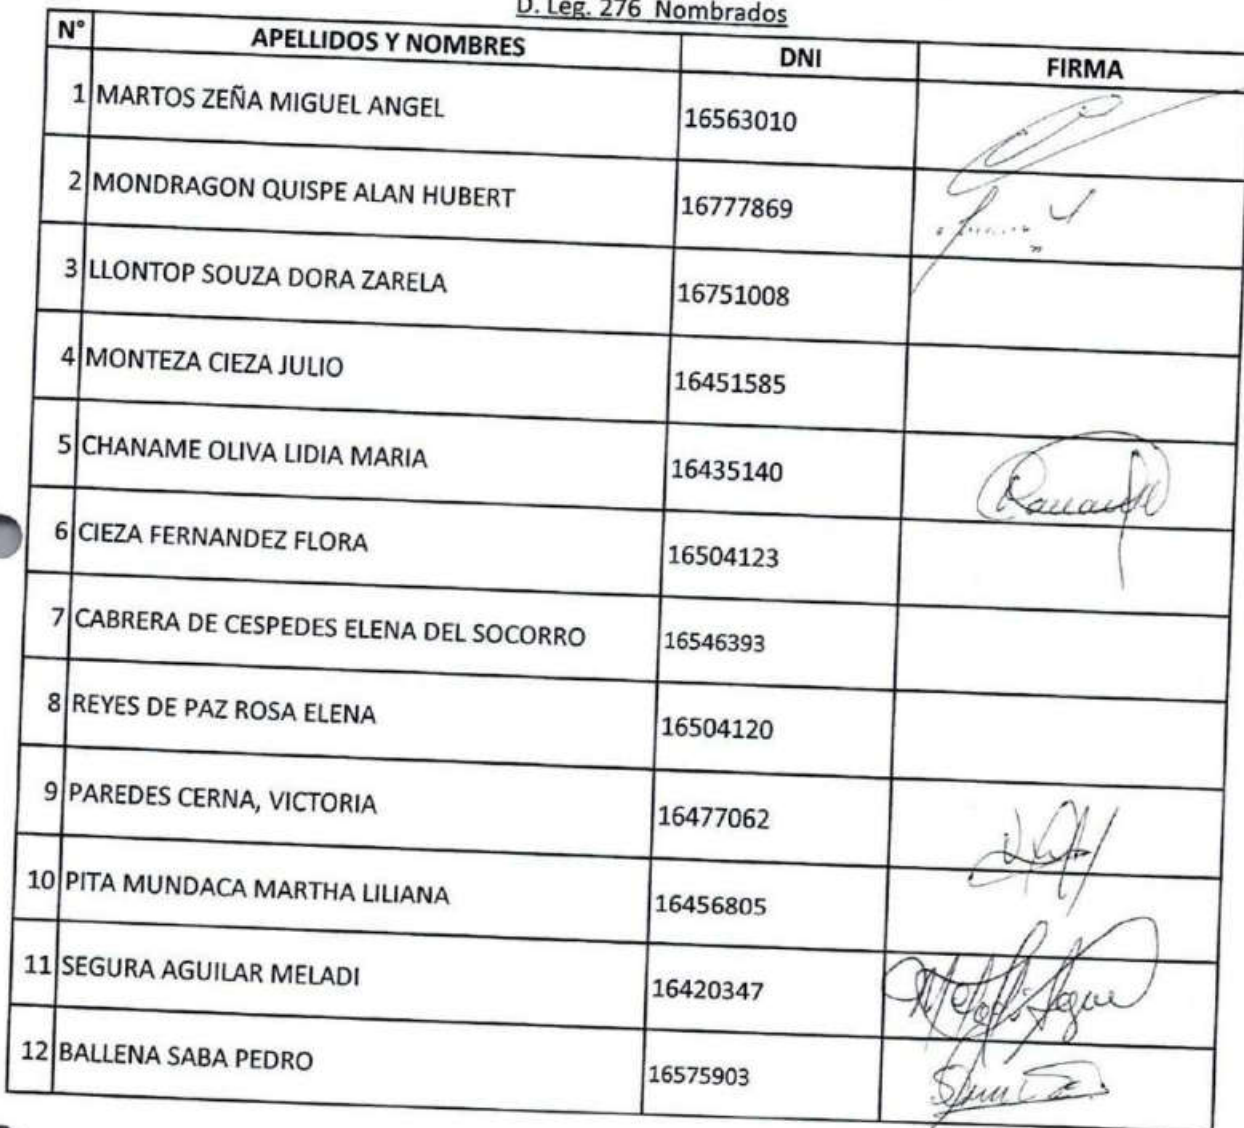 D. Leg. 276 Nombrados
N° APELLIDOS Y NOMBRES DNI FIRMA
1 MARTOS ZEÑA MIGUEL ANGEL 16563010
2 MONDRAGON QUISPE ALAN HUBERT 16777869
3 LLONTOP SOUZA DORA ZARELA 16751008
4 MONTEZA CIEZA JULIO 16451585
5 CHANAME OLIVA LIDIA MARIA 16435140
6 CIEZA FERNANDEZ FLORA 16504123
7 CABRERA DE CESPEDES ELENA DEL SOCORRO 16546393
8 REYES DE PAZ ROSA ELENA 16504120
9 PAREDES CERNA, VICTORIA 16477062
10 PITA MUNDACA MARTHA LILIANA 16456805
11 SEGURA AGUILAR MELADI 16420347
12 BALLENA SABA PEDRO 16575903